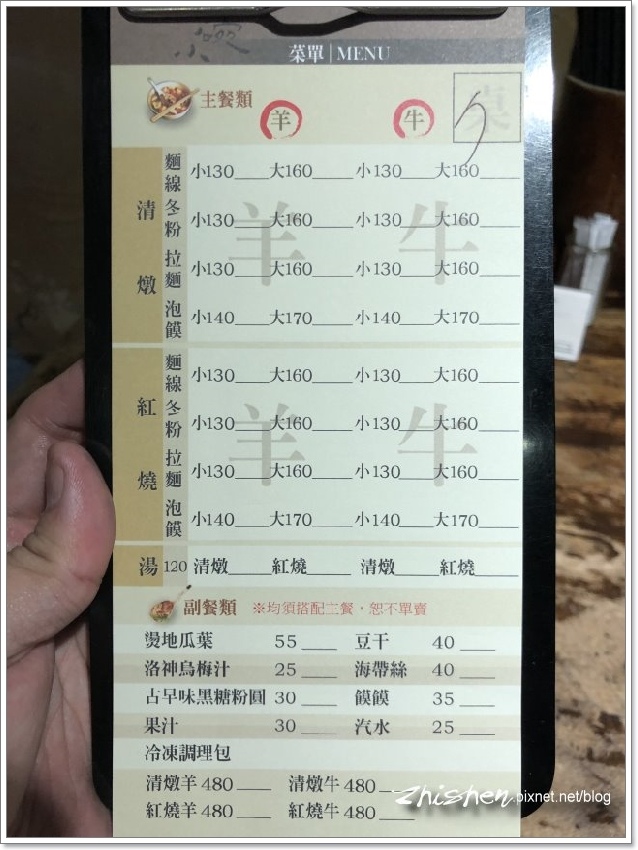 菜單 | MENU
主餐類 羊 牛 桌
清燉 羊 牛
麵線 小130____大160____ 小130____大160____
冬粉 小130____大160____ 小130____大160____
拉麵 小130____大160____ 小130____大160____
泡饃 小140____大170____ 小140____大170____
紅燒 羊 牛
麵線 小130____大160____ 小130____大160____
冬粉 小130____大160____ 小130____大160____
拉麵 小130____大160____ 小130____大160____
泡饃 小140____大170____ 小140____大170____
湯 120 清燉____ 紅燒____ 清燉____ 紅燒____
副餐類 ※均須搭配主餐，恕不單賣
燙地瓜葉 55 ____ 豆干 40 ____
洛神烏梅汁 25 ____ 海帶絲 40 ____
古早味黑糖粉圓 30 ____ 饃饃 35 ____
果汁 30 ____ 汽水 25 ____
冷凍調理包
清燉羊 480 ____ 清燉牛 480 ____
紅燒羊 480 ____ 紅燒牛 480 ____
zhishen.pixnet.net/blog